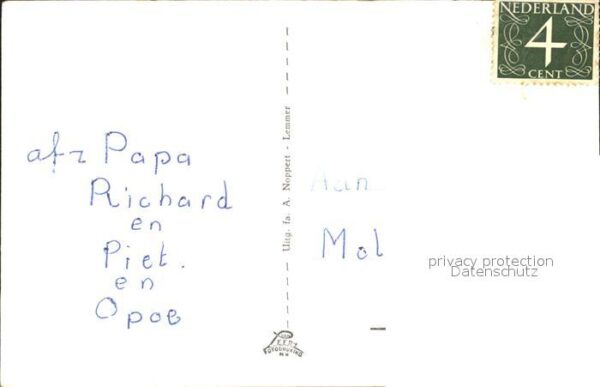 NEDERLAND
4
CENT
afz Papa
Richard
en
Piet.
en
Opoe
Uitg. fa. A. Noppert - Lemmer
Aan
Mol
privacy protection
Datenschutz
FOTODRUKIND